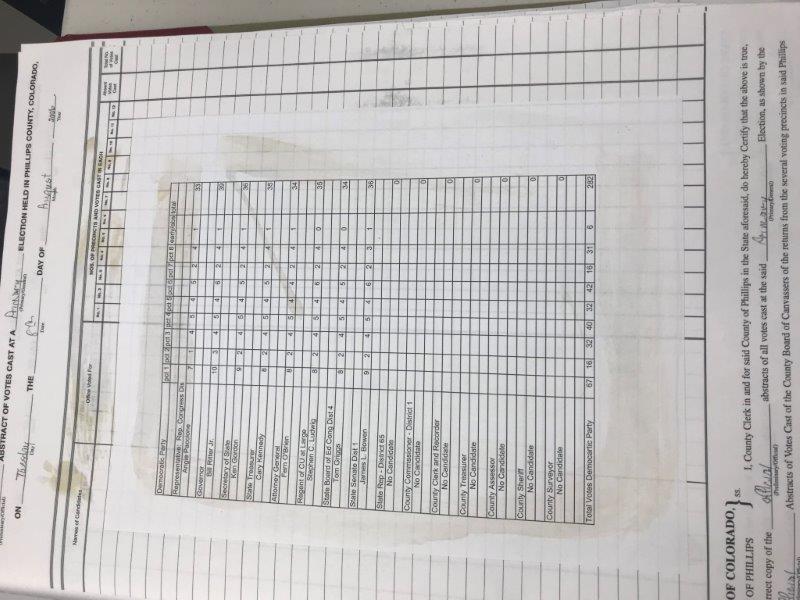 ABSTRACT OF VOTES CAST AT A Primary ELECTION HELD IN PHILLIPS COUNTY, COLORADO,
ON Tuesday THE 8th DAY OF August 2006
Day Date Month Year
Names of Candidates Office Voted For NOS. OF PRECINCTS AND VOTES CAST IN EACH Absent Votes Cast Total No. of Votes Cast
Democratic Party pct 1 pct 2 pct 3 pct 4 pct 5 pct 6 pct 7 pct 8 early/abs total
Representative: Rep. Congress Dis
Angie Paccione 7 1 4 5 4 5 2 4 1 33
Governor
Bill Ritter Jr. 10 3 4 5 4 6 2 4 1 39
Secretary of State
Ken Gordon 9 2 4 5 4 5 2 4 1 36
State Treasurer
Cary Kennedy 8 2 4 5 4 5 2 4 1 35
Attorney General
Fern O'Brien 8 2 4 5 4 4 2 4 1 34
Regent of CU at Large
Stephen C. Ludwig 8 2 4 5 4 6 2 4 0 35
State Board of Ed Cong Dist 4
Tom Griggs 8 2 4 5 4 5 2 4 0 34
State Senate Dist 1
James L. Bowen 9 2 4 5 4 6 2 3 1 36
State Rep - District 65
No Candidate 0
County Commissioner - District 1
No Candidate 0
County Clerk and Recorder
No Candidate 0
County Treasurer
No Candidate 0
County Assessor
No Candidate 0
County Sheriff
No Candidate 0
County Surveyor
No Candidate 0
Total Votes Democratic Party 67 16 32 40 32 42 16 31 6 282
OF COLORADO, } ss.
OF PHILLIPS
I, County Clerk in and for said County of Phillips in the State aforesaid, do hereby Certify that the above is true,
rrect copy of the official abstracts of all votes cast at the said Primary Election, as shown by the
(Preliminary/Official) (Primary/General)
Abstracts of Votes Cast of the County Board of Canvassers of the returns from the several voting precincts in said Phillips